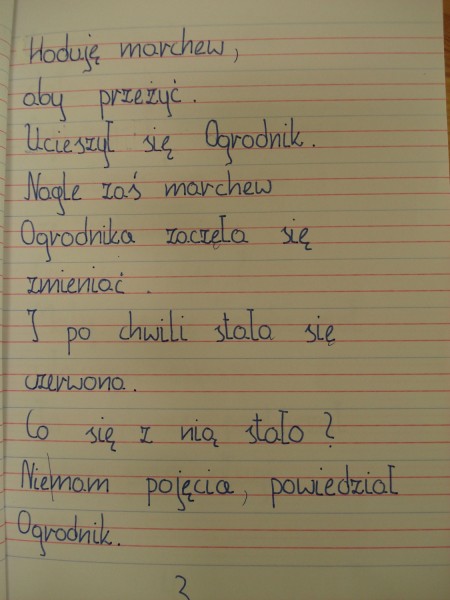 Hoduję marchew,
aby przeżyć.
Ucieszył się Ogrodnik.
Nagle zaś marchew
Ogrodnika zaczęła się
zmieniać.
I po chwili stała się
czerwona.
Co się z nią stało?
Nie|mam pojęcia, powiedział
Ogrodnik.
3